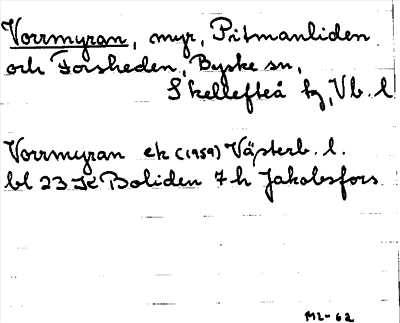 Vorrmyran, myr, Pitmanliden
och Forsheden, Byske sn,
Skellefteå kg, Vb. l
Vorrmyran ek (1959) Västerb. l.
bl 23 K Boliden 7 h Jakobsfors
M2-62